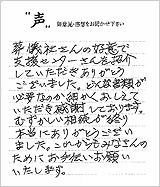 "声"
御意見・感想をお聞かせ下さい
葬儀社さんの好意で
支援センターさんを紹介
していただきありがとう
ございました。どんな書類が
必要なのか細かくおしえて
いただき感謝しております。
むずかしい相続が終り
本当にありがとうござい
ました。これからもみなさんの
ためにお手伝いお願い
いたします。